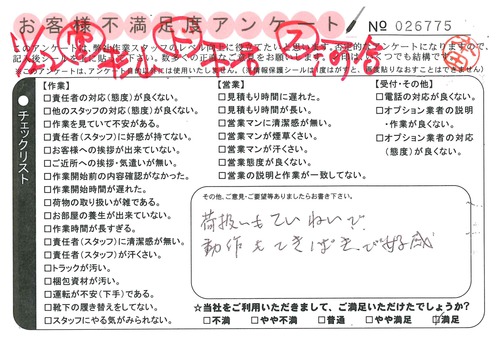 お客様不満足度アンケート
№ 026775
このアンケートは、弊社作業スタッフのレベル向上に役立てたいと思います。否定的なアンケートになりますので、
チェックリスト
【作業】
□責任者の対応(態度)が良くない。
□他のスタッフの対応(態度)が良くない。
□作業を見ていて不安がある。
□責任者(スタッフ)に好感が持てない。
□お客様への挨拶が出来ていない。
□ご近所への挨拶・気遣いが無い。
□作業開始前の内容確認がなかった。
□作業開始時間が遅れた。
□荷物の取り扱いが雑である。
□お部屋の養生が出来ていない。
□作業時間が長すぎる。
□責任者(スタッフ)に清潔感が無い。
□責任者(スタッフ)が汗くさい。
□トラックが汚い。
□梱包資材が汚い。
□運転が不安(下手)である。
□靴下の履き替えをしてない。
□スタッフにやる気がみられない。
【営業】
□見積もり時間に遅れた。
□見積もり時間が長い。
□営業マンに清潔感が無い。
□営業マンが煙草くさい。
□営業マンが汗くさい。
□営業態度が良くない。
□営業の説明と作業が一致してない。
【受付・その他】
□電話の対応が良くない。
□オプション業者の説明
・作業が良くない。
□オプション業者の対応
(態度)が良くない。
その他、ご意見・ご要望等ありましたらお書き下さい。
荷扱いもていねいで
動作もてきぱきで好感
☆当社をご利用いただきまして、ご満足いただけたでしょうか?
□不満 □やや不満 □普通 □やや満足 □満足